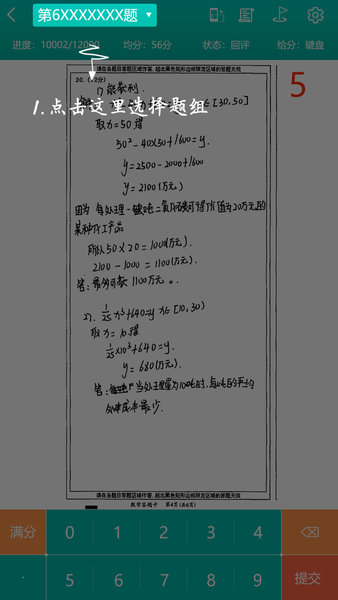 第6XXXXXXX题
进度：10002/12000 均分：56分 状态：回评 给分：键盘
请在各题目答题区域作答，超出黑色矩形边框限定区域的答案无效
20.(12分)
1.点击这里选择题组
5
[30,50]
取x=50得
50²-40×50+1600=y.
y=2500-2000+1600
y=2100(万元)
因为 每处理一吨二氧化碳可得价值为20万元的
某种化工产品
所以50×20=1000(万元).
2100-1000=1100(万元).
答：最多亏损1100万元。
2). 1/25 x³+640=y x∈[10,30)
取x=10得
1/25×10³+640=y.
y=680(万元).
答： 当处理量为10吨时，每吨的平均
处理成本最少.
请在各题目答题区域作答，超出黑色矩形边框限定区域的答案无效
数学答题卡 第4页(共6页)
满分 0 1 2 3 4
· 5 6 7 8 9 提交